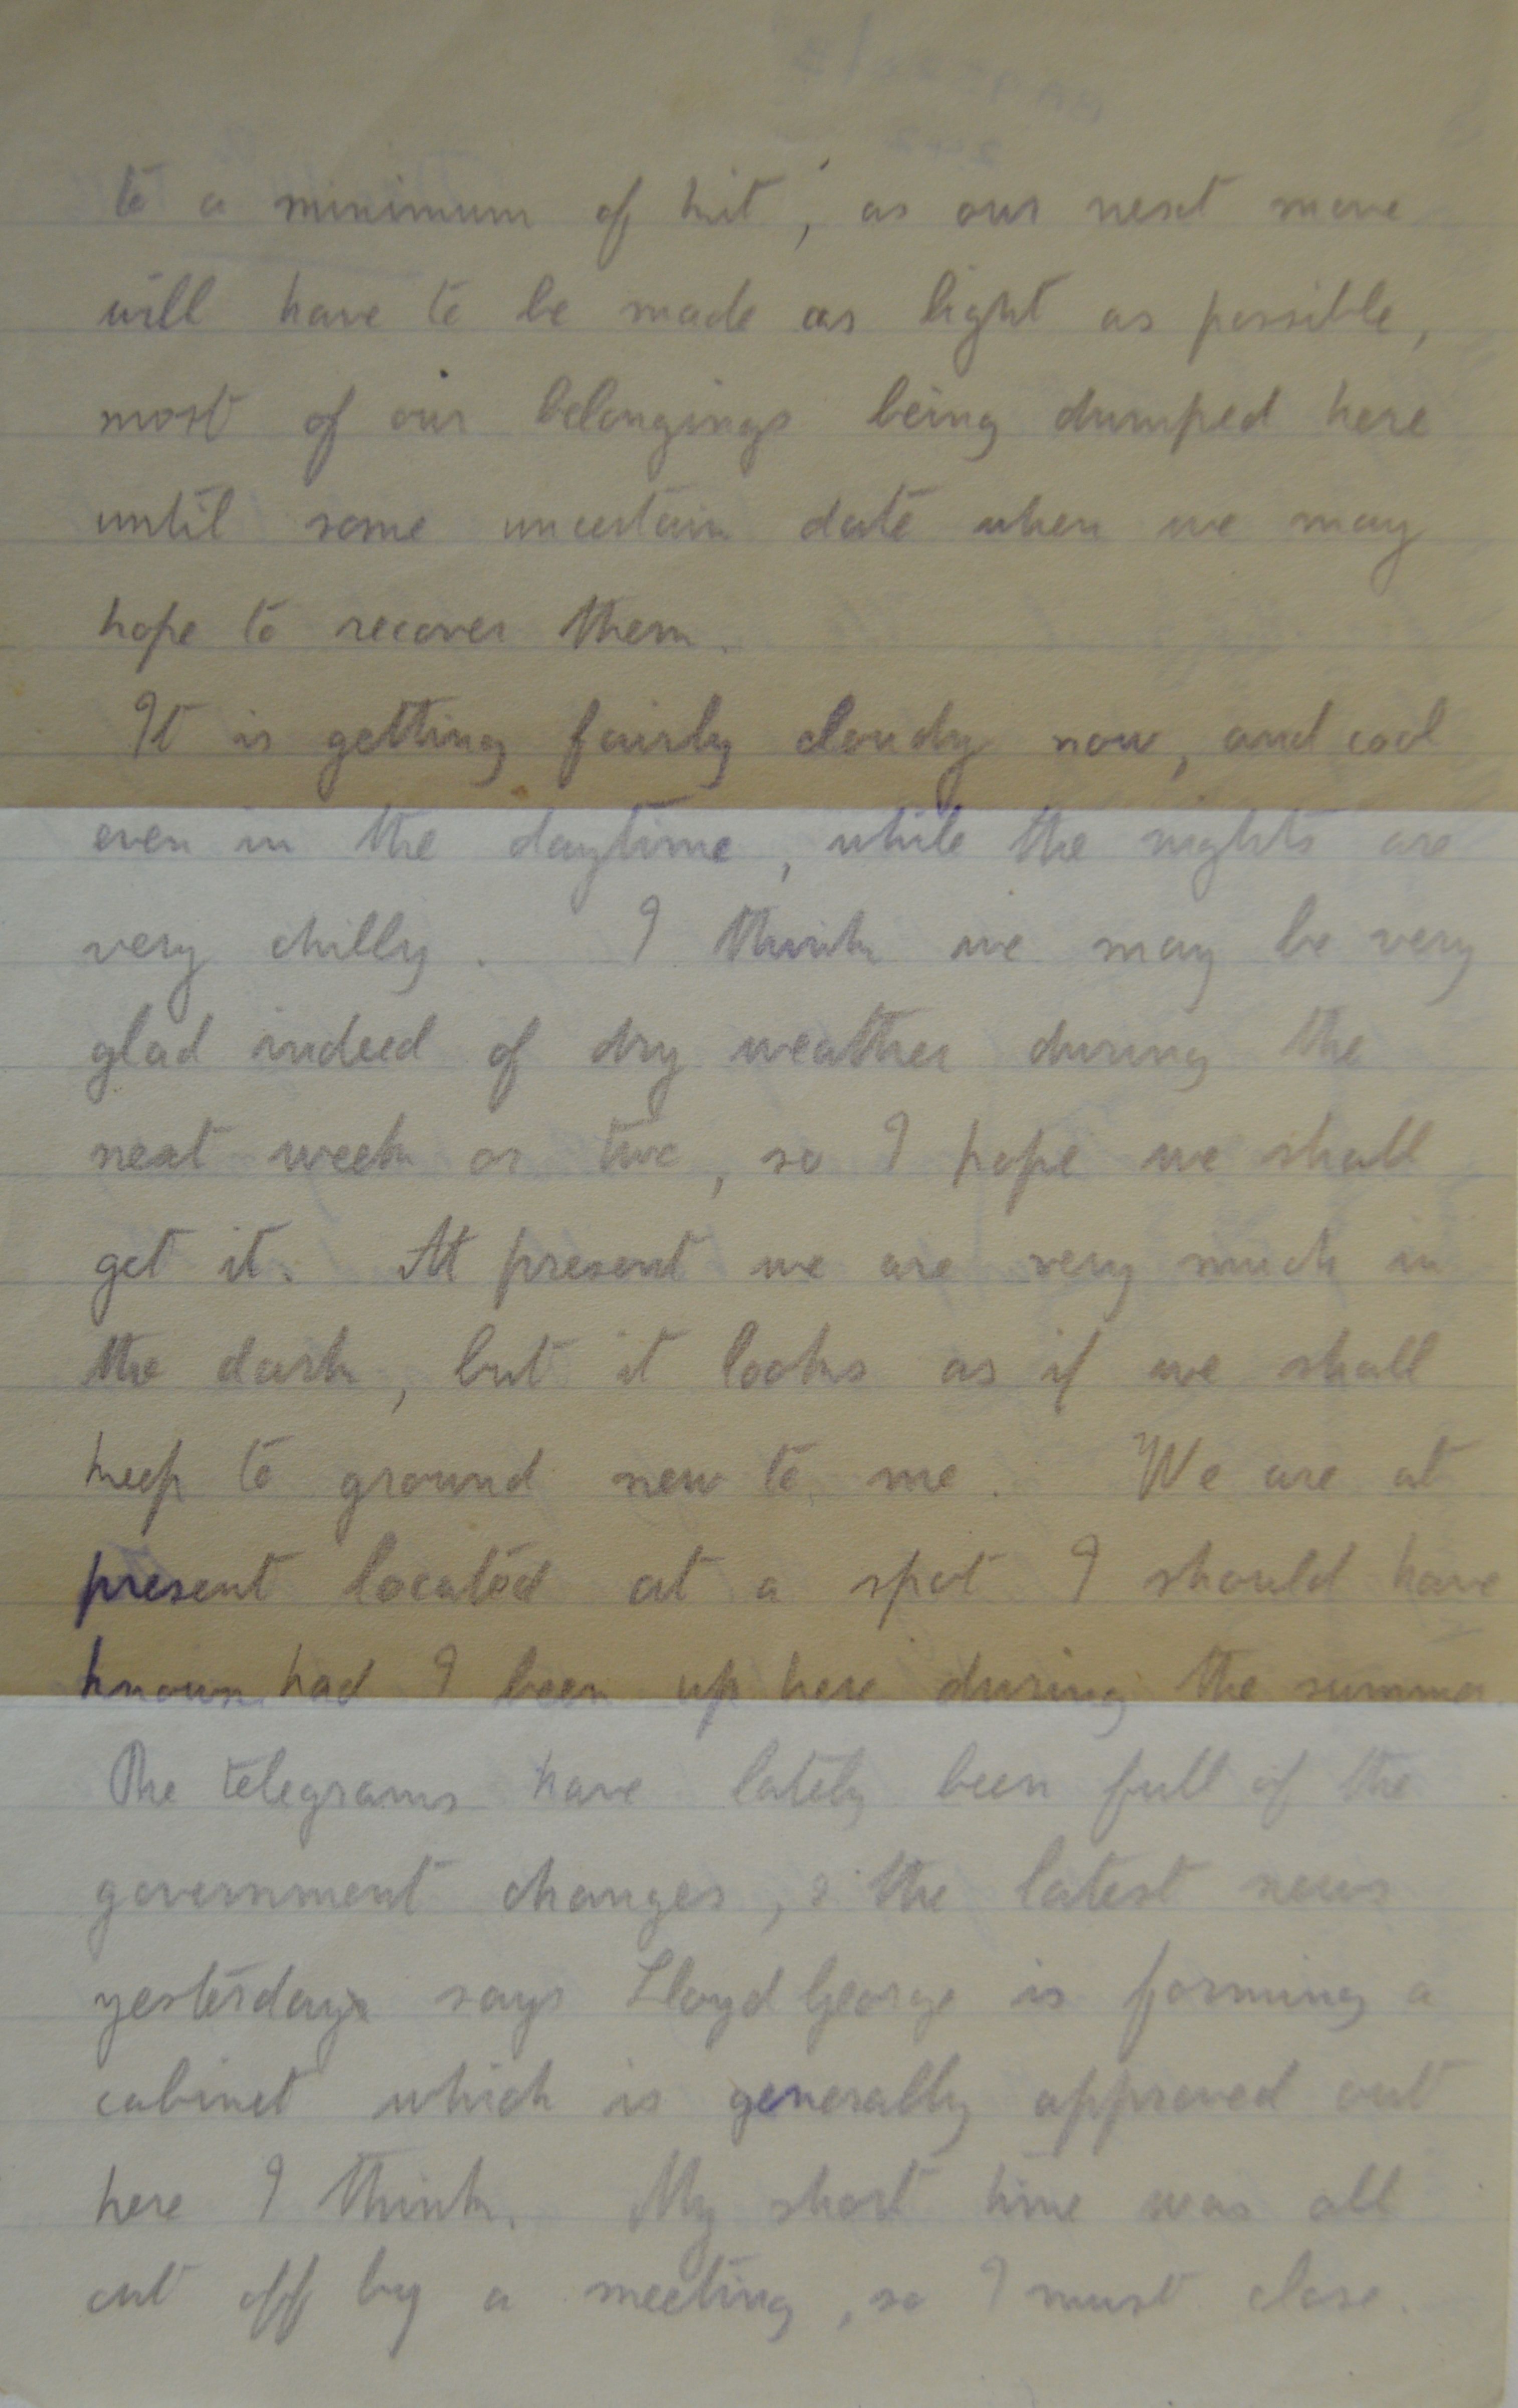 to a minimum of kit, as our next move
will have to be made as light as possible,
most of our belongings being dumped here
until some uncertain date when we may
hope to recover them.
It is getting fairly cloudy now, and cool
even in the daytime, while the nights are
very chilly. I think we may be very
glad indeed of dry weather during the
next week or two, so I hope we shall
get it. At present we are very much in
the dark, but it looks as if we shall
keep to ground new to me. We are at
present located at a spot I should have
known had I been up here during the summer.
The telegrams have lately been full of the
government changes, & the latest news
yesterday says Lloyd George is forming a
cabinet which is generally approved out
here I think. My short time was all
cut off by a meeting, so I must close.